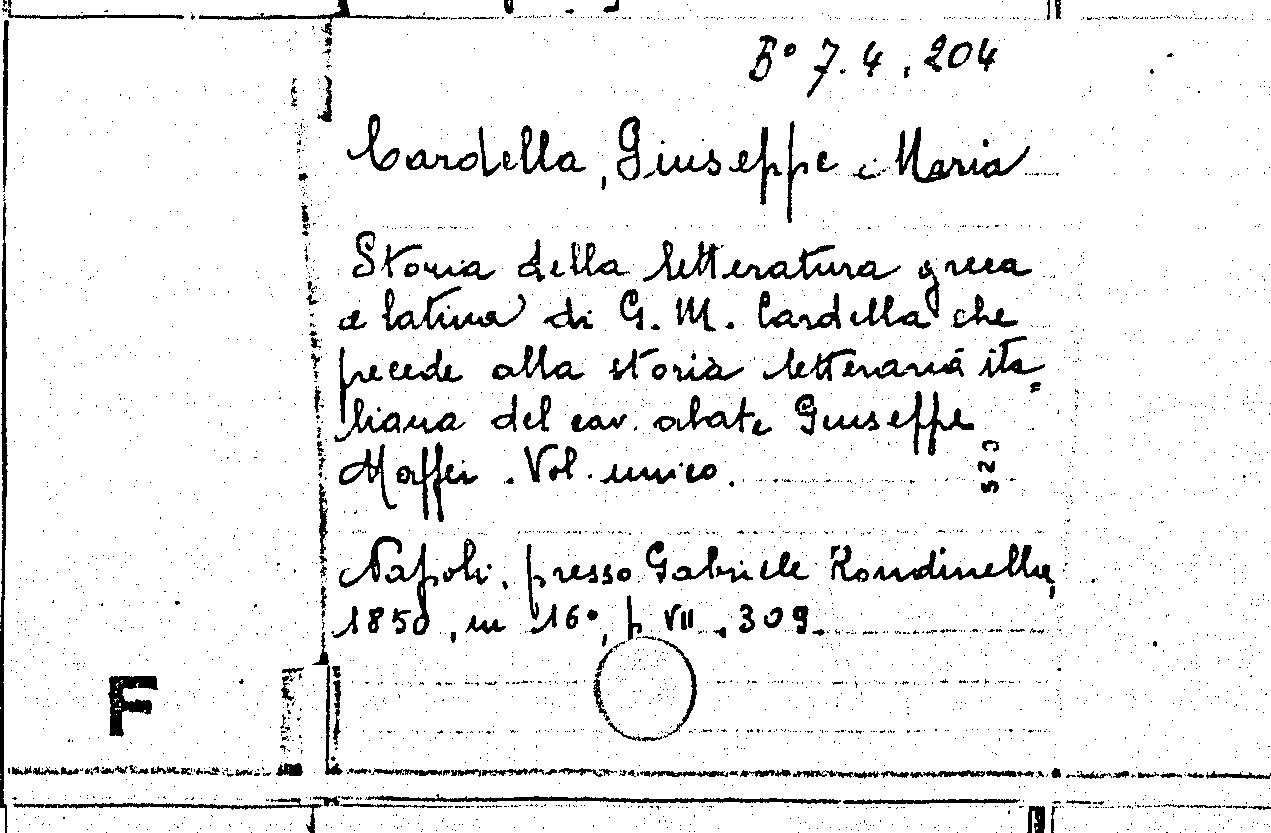 B° 7.4.204
Cardella, Giuseppe Maria
Storia della letteratura greca
e latina di G. M. Cardella che
precede alla storia letteraria ita=
liana del cav. abate Giuseppe
Maffei. Vol. unico.
523
Napoli, presso Gabriele Rondinella,
1850, in 16°, p VII, 309.
F